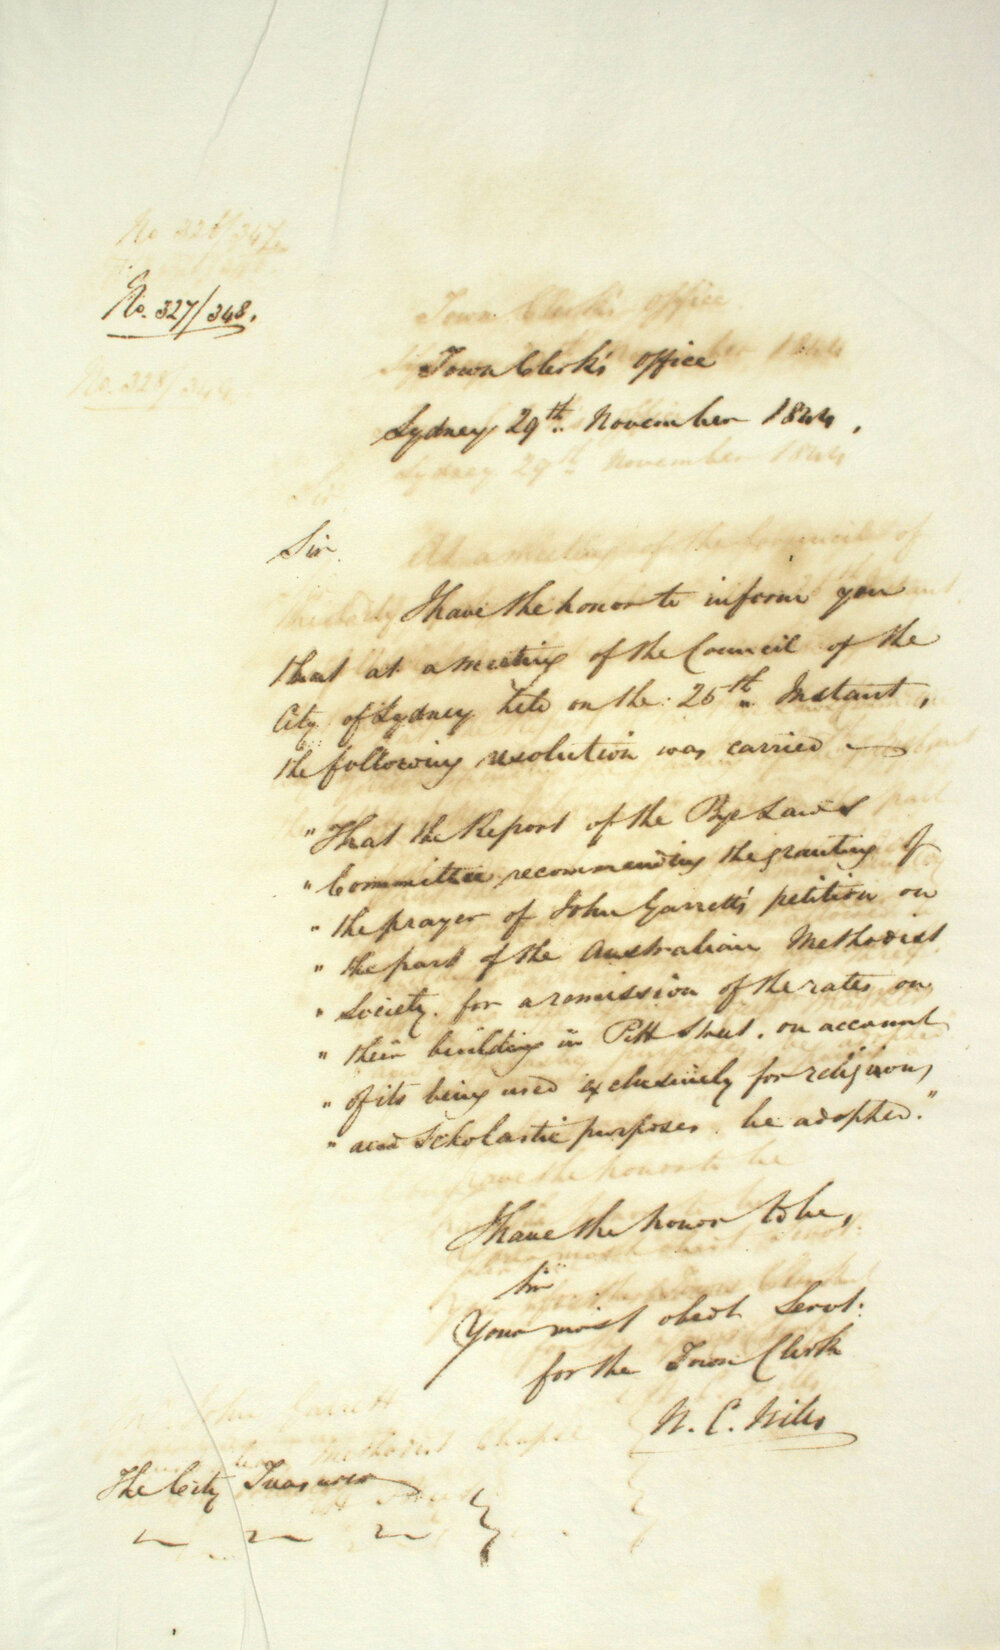 No. 327/348.
Town Clerk's office
Sydney 29th November 1844,
Sir
I have the honor to inform you
that at a meeting of the Council of the
City of Sydney held on the 25th Instant,
the following resolution was carried —
"That the Report of the Bye Laws
"Committee recommending the granting of
"the prayer of John Garrett's petition on
"the part of the Australian Methodist
"Society. for a remission of the rates on
"their building in Pitt Street. on account
"of its being used exclusively for religious,
"and Scholastic purposes. be adopted."
I have the honor to be,
Sir
Your most obedt Servt:
for the Town Clerk
The City Treasurer